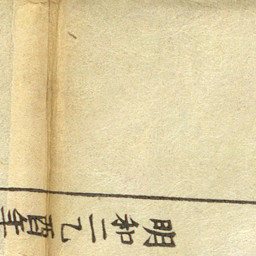 明和二乙酉年